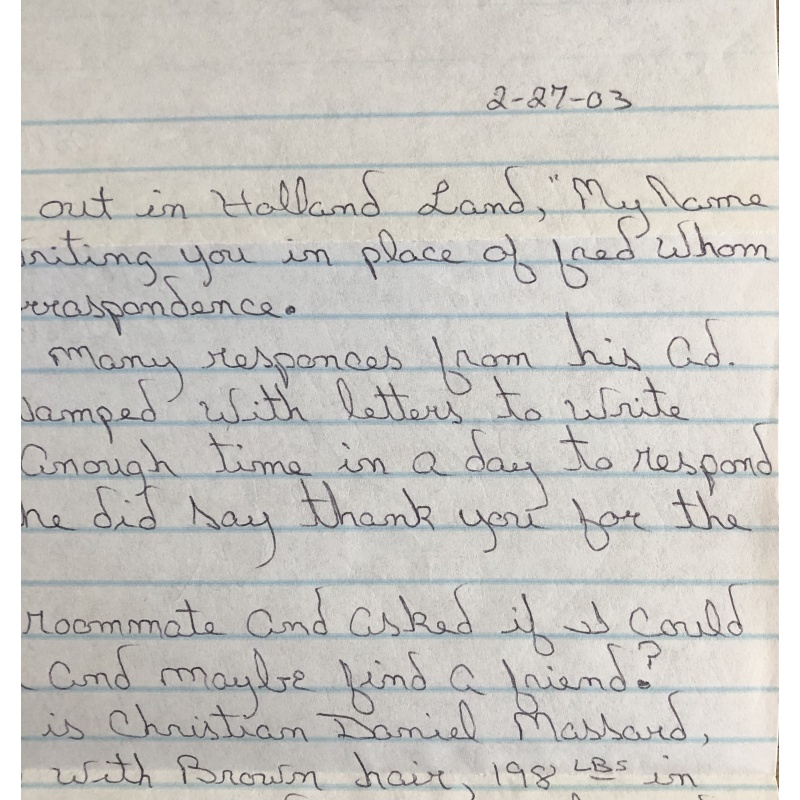 2-27-03
out in Holland Land," My Name
riting you in place of fred whom
rraspondence.
many responces from his ad.
amped with letters to write
anough time in a day to respond
he did say thank you for the
roommate and asked if I could
and maybe find a friend?
is Christian Daniel Massard,
with Brown hair, 198 LBS in